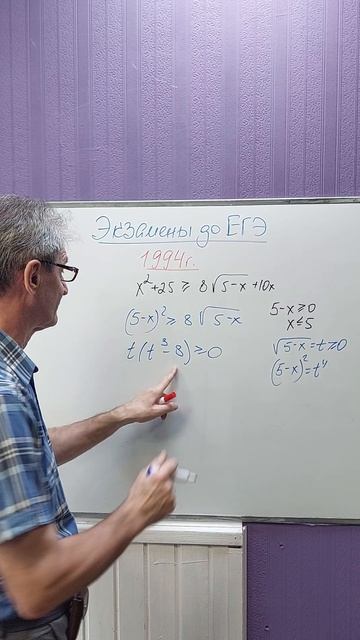 Экзамены до ЕГЭ
1994г.
x²+25 ≥ 8√5-x +10x
(5-x)² ≥ 8√5-x
t(t³-8) ≥ 0
5-x ≥ 0
x ≤ 5
√5-x = t ≥ 0
(5-x)² = t⁴